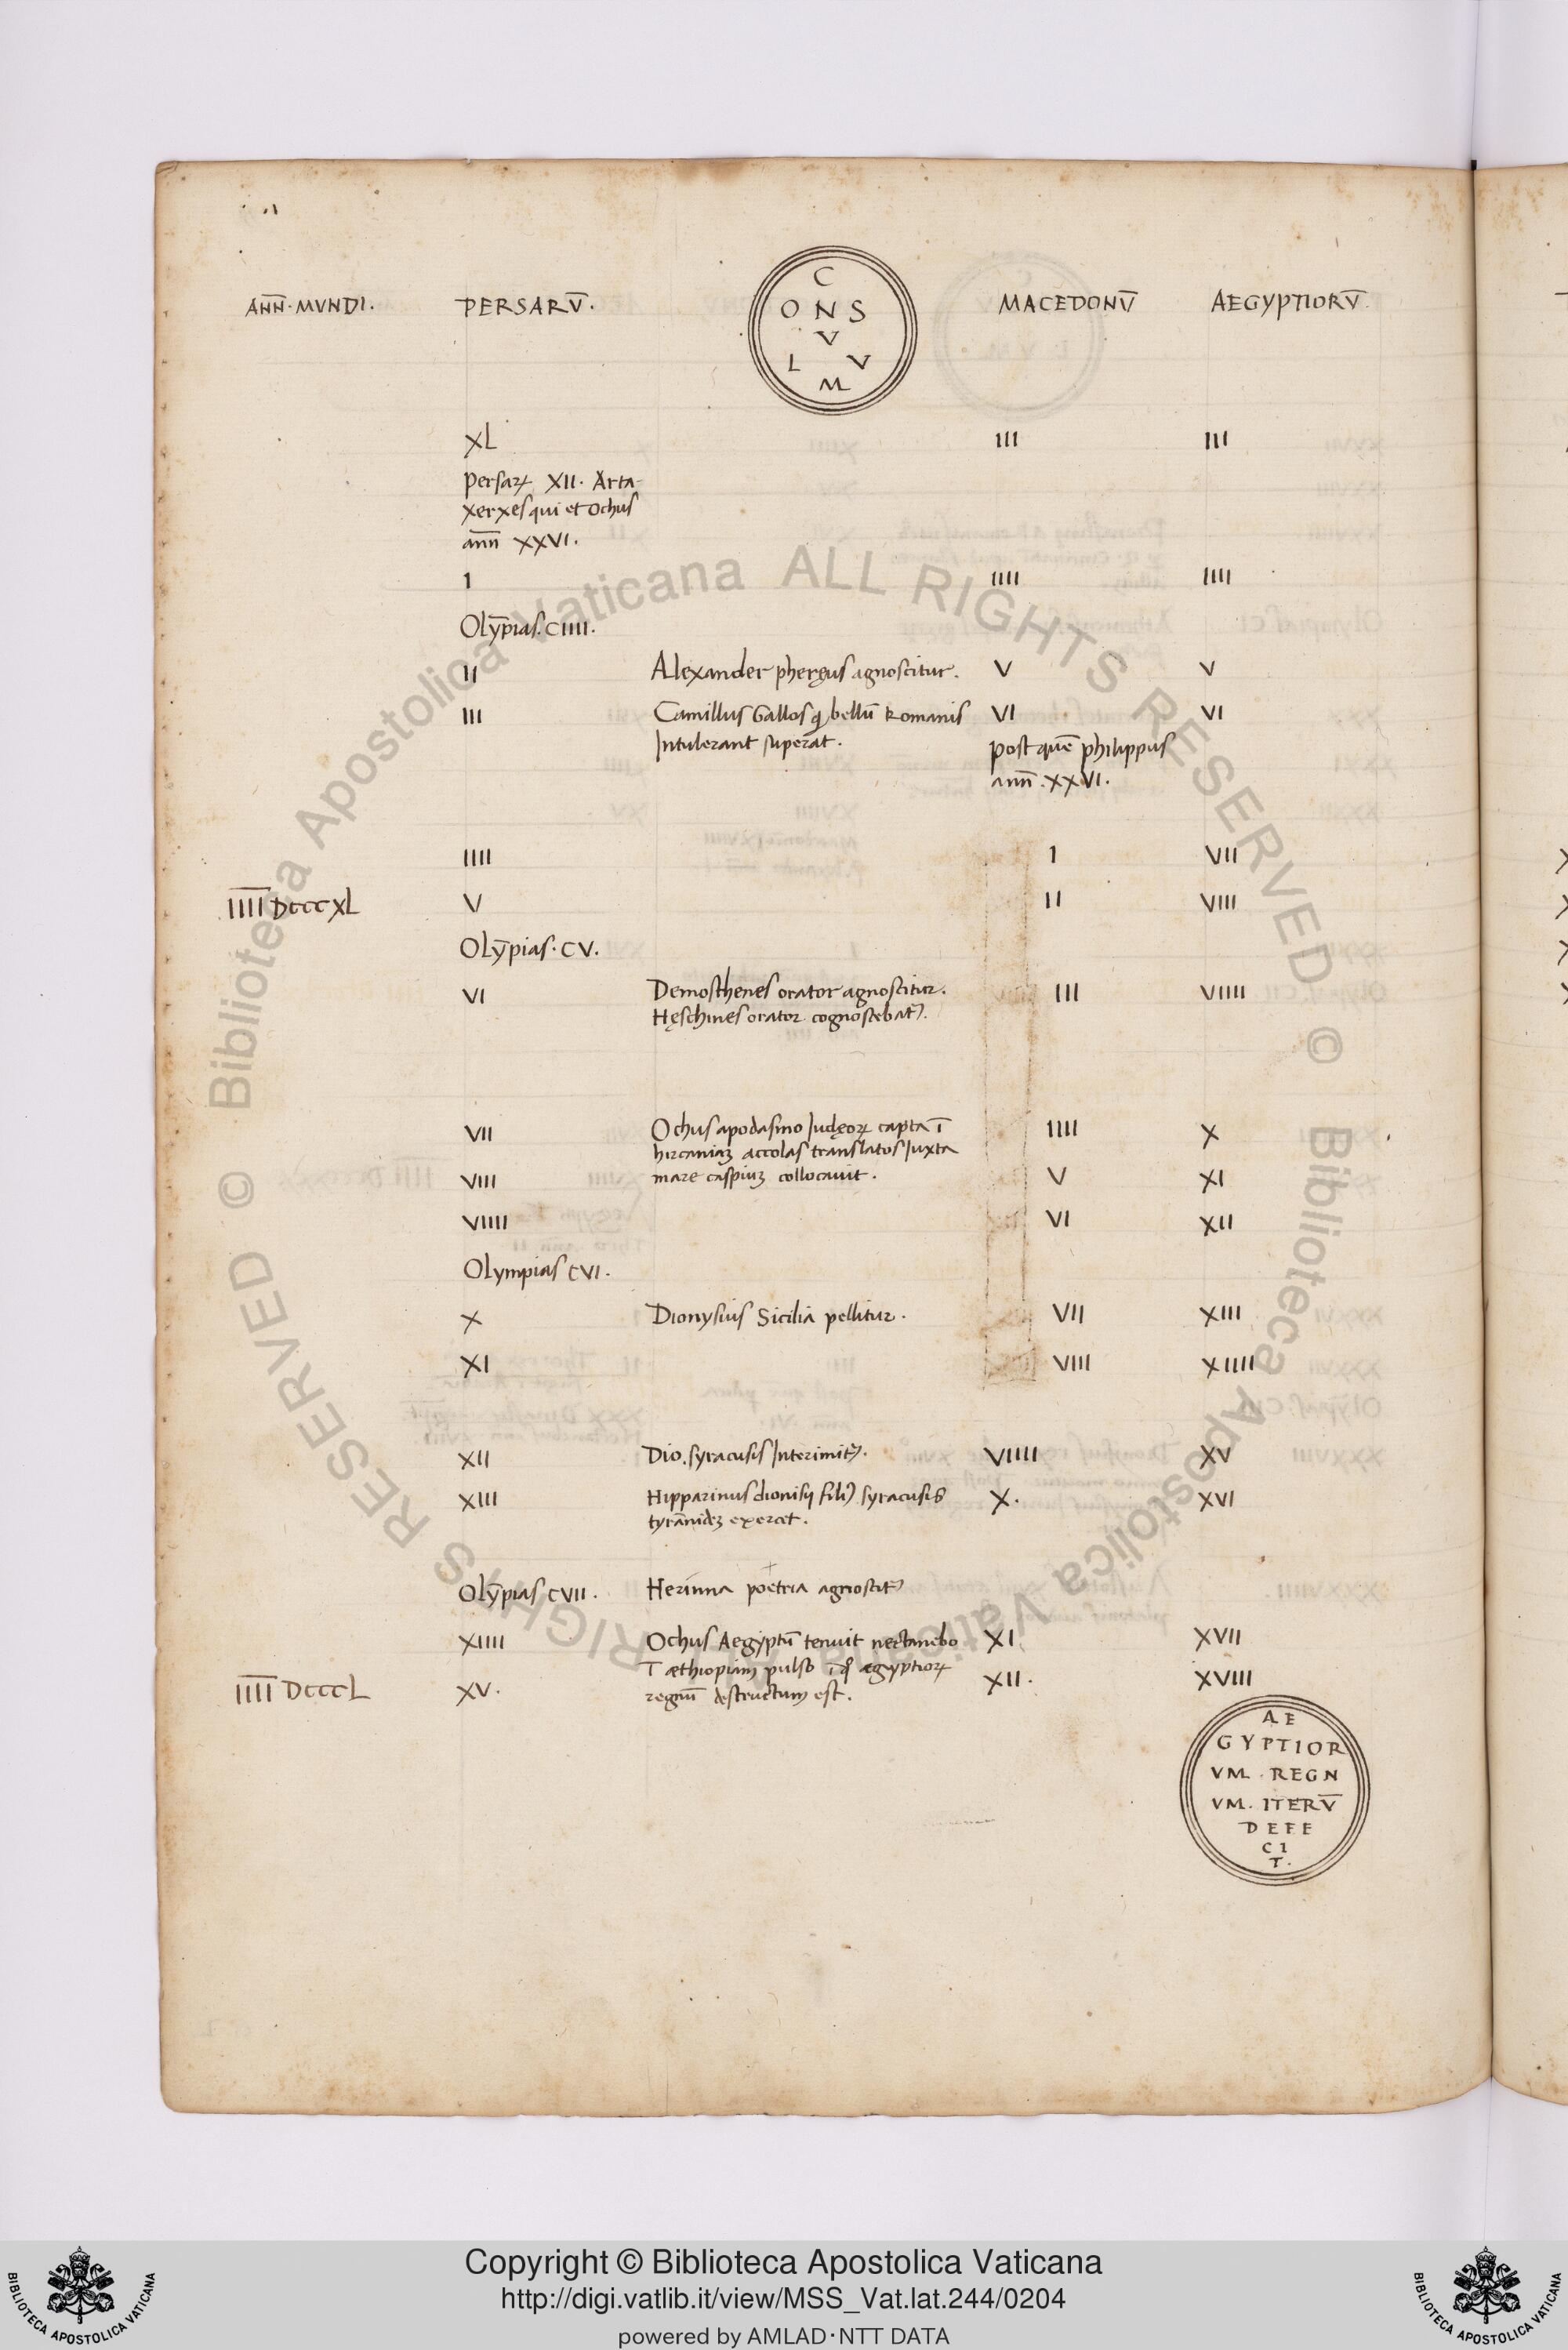 ANN̅. MVNDI. PERSARV̅. MACEDONV̅ AEGYPTIORV̅.
C
O N S
V
L V
M
XL III III
Persaꝝ XII. Arta-
xerxes qui et Ochus
ann̅ XXVI.
I IIII IIII
Oly̅pias. CIIII.
II Alexander pheręus agnoscitur. V V
III Camillus Gallos q bellu̅ Romanis VI VI
Intulerant superat. post que̅ philippus
ann̅. XXVI.
IIII I VII
I̅I̅I̅I̅ DCCCXL V II VIII
Oly̅pias. CV.
VI Demosthenes orator agnoscitur. III VIIII
Hęschines orator cognoscebat᷑.
VII Ochus apodasmo Judęoꝝ capta i̅ IIII X
hircaniaꝫ accolas translatos Juxta
VIII mare caspiuꝫ collocauit. V XI
VIIII VI XII
Olympias CVI.
X Dionysius Sicilia pellitur. VII XIII
XI VIII XIIII
XII Dio. syracusis Interimit᷑. VIIII XV
XIII Hipparinus dionisij filiꝰ syracusis X. XVI
tyra̅nideꝫ exercet.
Oly̅pias CVII. Herinna poetria agnoscit᷑
XIIII Ochus Aegyptu̅ tenuit nectanebo XI XVII
I̅ aethiopiam pulso aegyptioꝝ
I̅I̅I̅I̅ DCCCL XV. regnu̅ destructum est. XII. XVIII
AE
GYPTIOR
VM. REGN
VM. ITERV̅
DEFE
CI
T.
© Biblioteca Apostolica Vaticana ALL RIGHTS RESERVED © Biblioteca Apostolica Vaticana ALL RIGHTS RESERVED
BIBLIOTECA APOSTOLICA VATICANA
Copyright © Biblioteca Apostolica Vaticana
http://digi.vatlib.it/view/MSS_Vat.lat.244/0204
powered by AMLAD·NTT DATA
BIBLIOTECA APOSTOLICA VATICANA